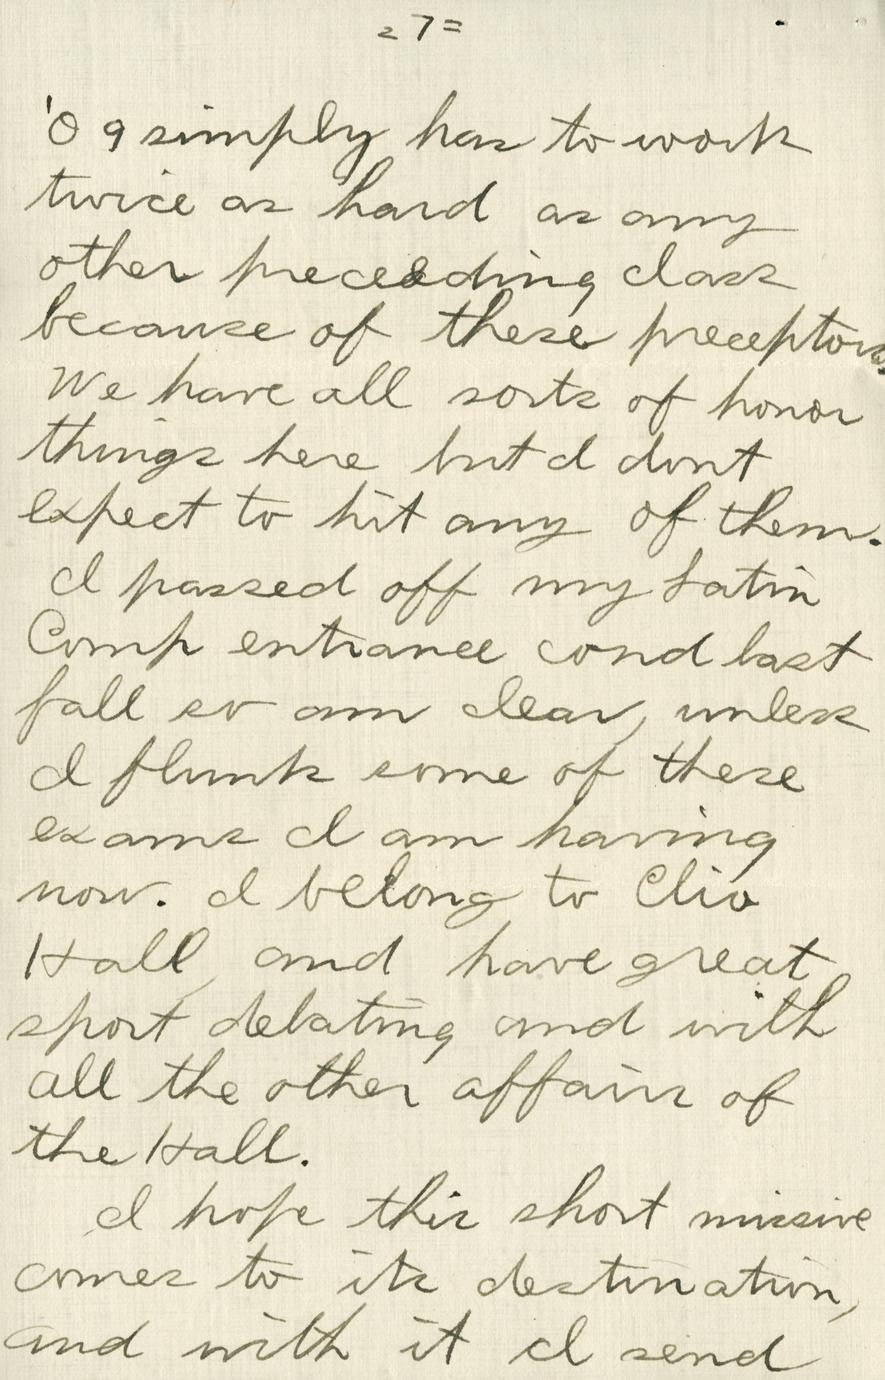 =7=
'09 simply has to work
twice as hard as any
other preceeding class
because of these preceptors.
We have all sorts of honor
things here but I dont
expect to hit any of them.
I passed off my Latin
Comp entrance cond last
fall so am clear, unless
I flunk some of these
exams I am having
now. I belong to Clio
Hall, and have great
sport debating and with
all the other affairs of
the Hall.
I hope this short missive
comes to its destination,
and with it I send